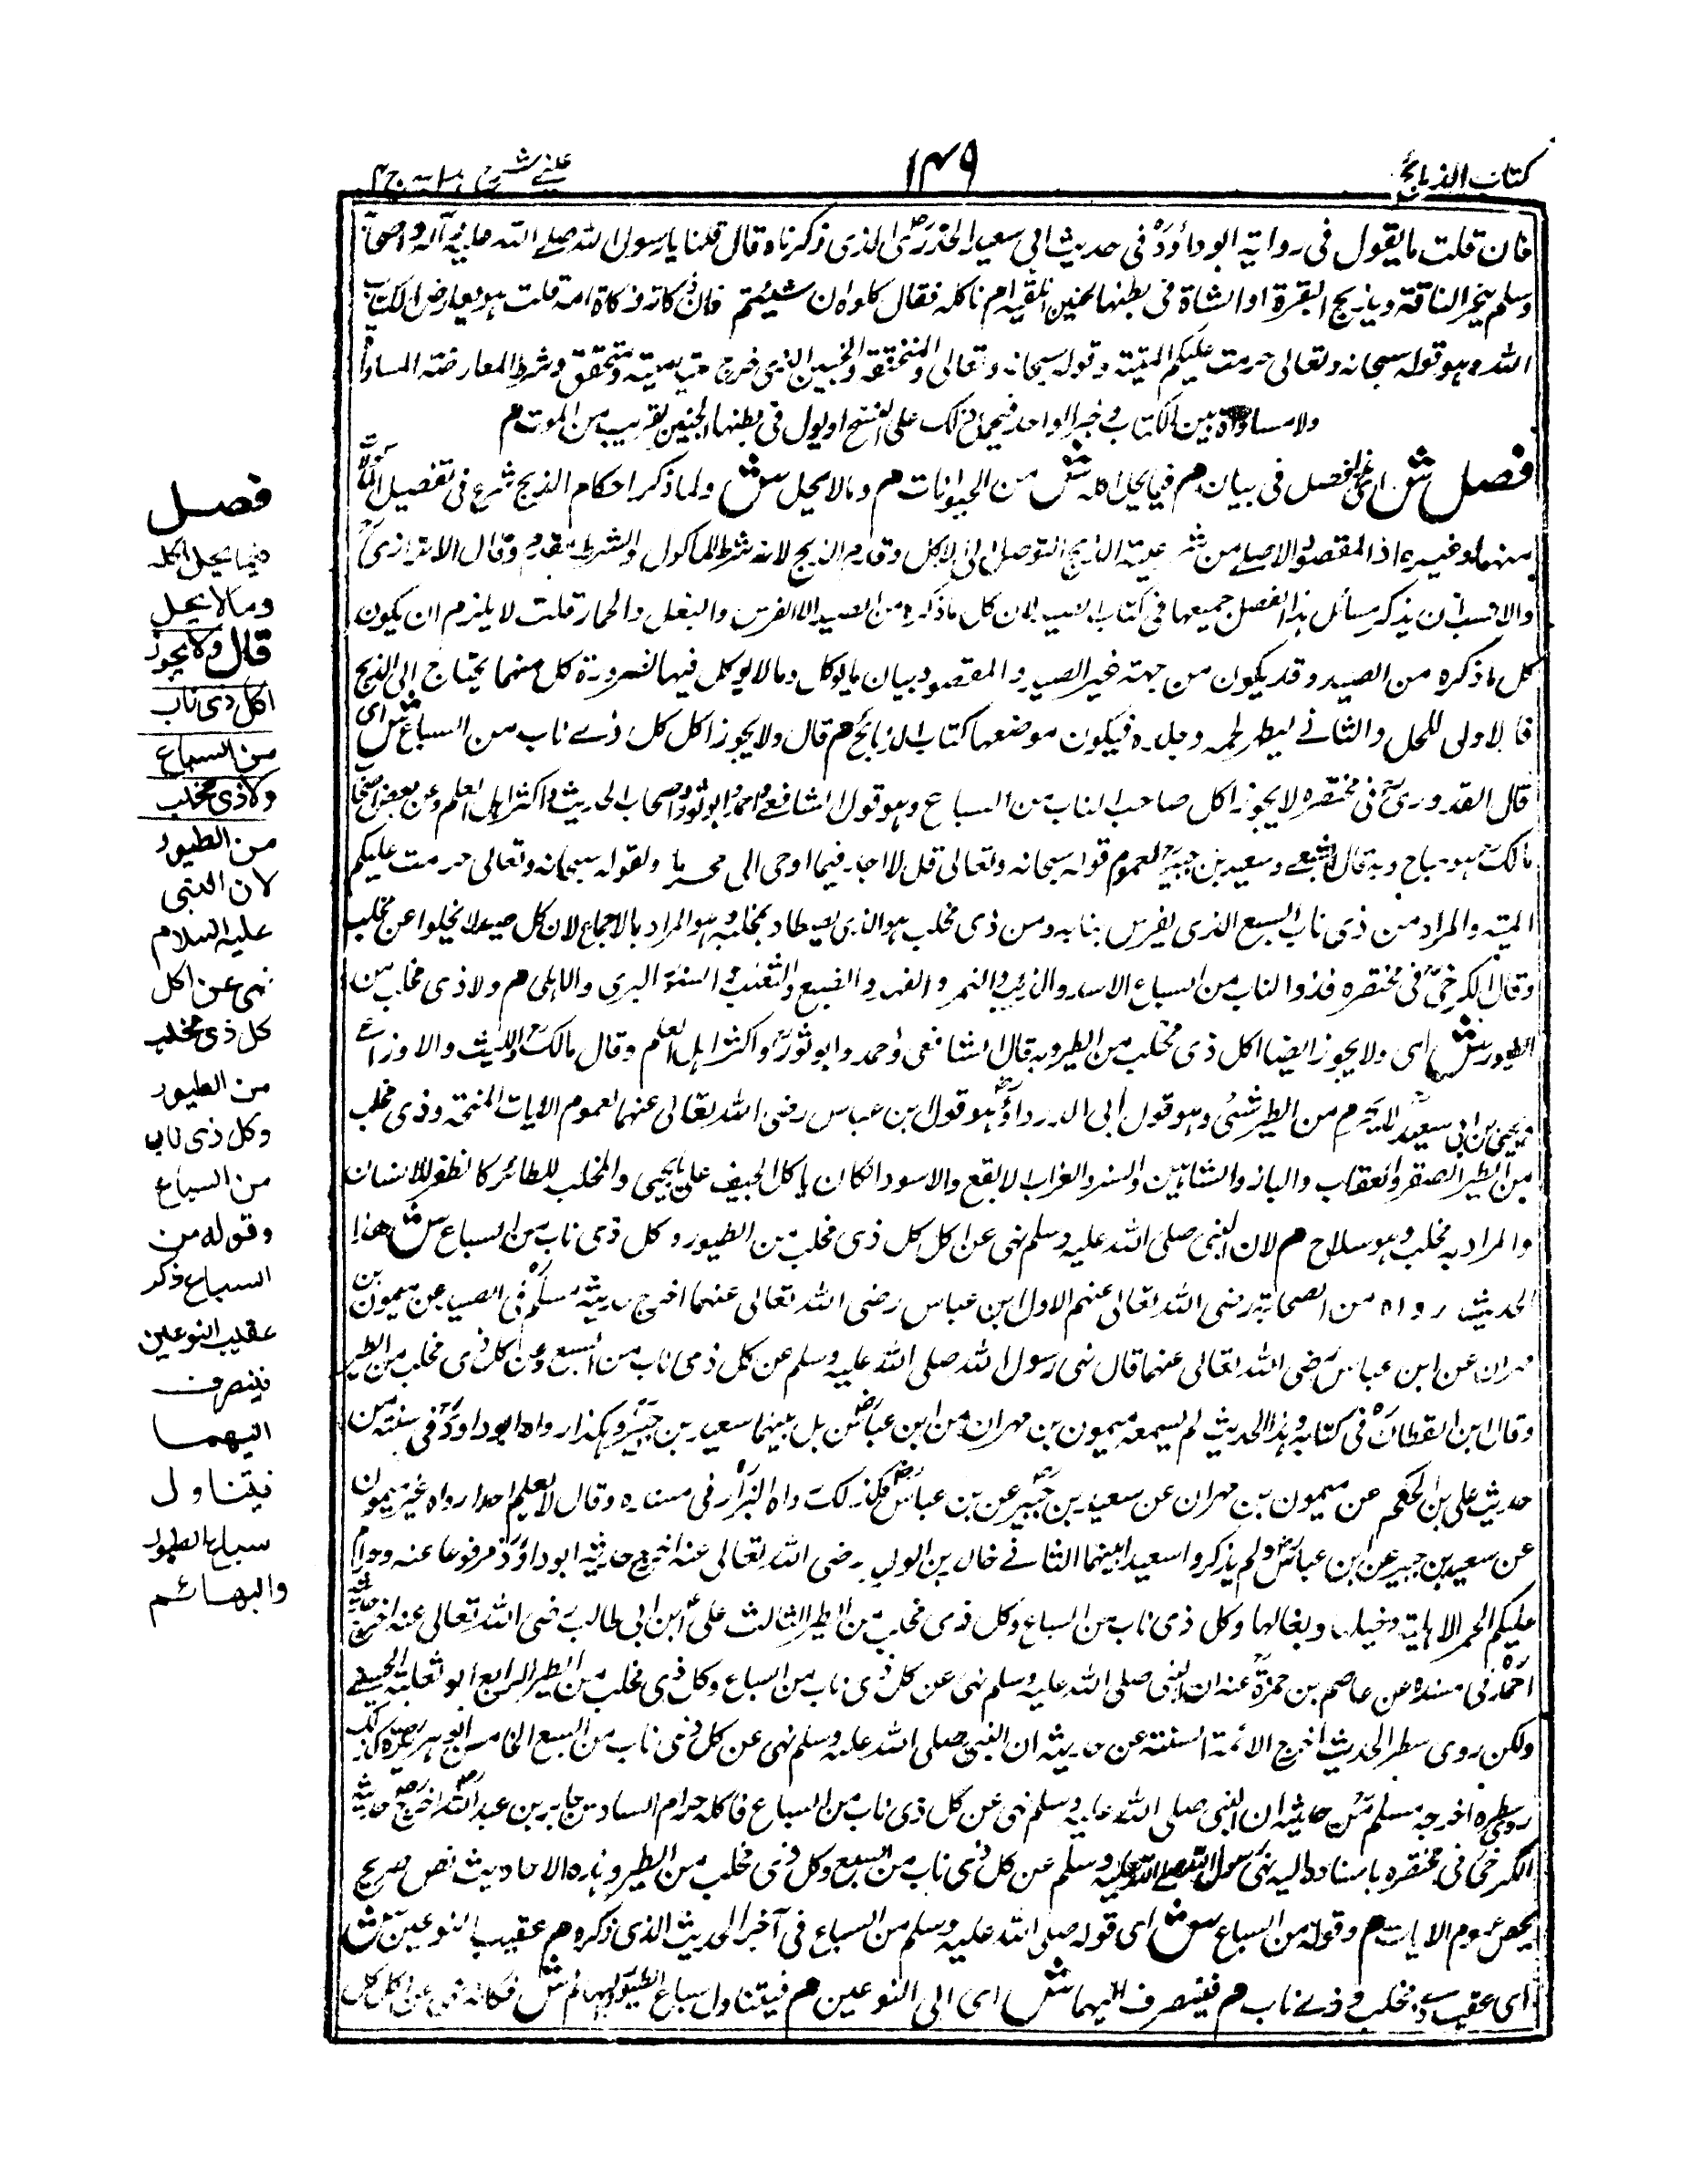 كتاب الذبائح
١٤٩
عيني شرح هداية ج ٤
فان قلت ما يقول فى رواية ابو داؤد فى حديث ابى سعيد الخدرى الذى ذكرناه قال قلنا يا رسول الله صلى الله عليه وآله واصحابه
وسلم ينحر الناقة ويذبح البقرة او الشاة فى بطنها الجنين انلقيه ام ناكله فقال كلوه ان شئتم فان ذكاته ذكاة امه قلت هو يعارض الكتاب
الله وهو قوله سبحانه وتعالى حرمت عليكم الميتة وقوله سبحانه وتعالى والمنخنقة والجنين الذى خرج ميتا ميتة ومتحقق وشرط المعارضة المساواة
ولا مساواة بين الكتاب وخبر الواحد فيحمل ذلك على الفسخ او يول فى بطنها الجنين يقرب من الموت م
فصل ش اى هذا الفصل فى بيان م فيما يحل اكله ش من الحيوانات م وما لا يحل ش ولما ذكر احكام الذبح شرع فى تفصيل الماكولات
منها وغيره اذ المقصود الاصلى من شرعية الذبح التوصل الى الاكل وقدم الذبح لانه شرط الماكول والشرط مقدم وقال الاترازى
والانسب ان يذكر مسائل هذا الفصل جميعها فى كتاب الصيد لان كل ما ذكره من الصيد الا الفرس والبغل والحمار قلت لا يلزم ان يكون
كل ما ذكره من الصيد وقد يكون من جهة غير الصيد والمقصود بيان ما يوكل وما لا يوكل فيها الضرورة كل منهما يحتاج الى الذبح
فالاولى للحل والثانى ليطهر لحمه وجلده فيكون موضعها كتاب الذبائح م قال ولا يجوز اكل كل ذى ناب من السباع ش اى
قال القدورى فى مختصره لا يجوز اكل صاحب الناب من السباع وهو قول الشافعى واحمد وابو ثور واصحاب الحديث واكثر اهل العلم وعن بعض اصحاب
مالك هو مباح وبه قال الشعبى وسعيد بن جبير لعموم قوله سبحانه وتعالى قل لا اجد فيما اوحى الى محرما ولقوله سبحانه وتعالى حرمت عليكم
الميتة والمراد من ذى ناب السبع الذى يفرس بنابه ومن ذى مخلب هو الذى يصطاد بمخلبه وهو المراد بالاجماع لان كل صيد لا يخلوا عن مخلب
وقال الكرخى فى مختصره فذو الناب من السباع الاسد والذئب والنمر والفهد والضبع والثعلب والسنور البرى والاهلى م ولا ذى مخلب من
الطيور ش اى ولا يجوز ايضا اكل ذى مخلب من الطير وبه قال الشافعى واحمد وابو ثور واكثر اهل العلم وقال مالك والليث والاوزاعى
ويحيى بن ابى سعيد لا يحرم من الطير شئى وهو قول ابى الدرداء وهو قول ابن عباس رضى الله تعالى عنهما لعموم الايات المنحة وذى مخلب
من الطير الصقر والعقاب والباز والشاهين والنسر والغراب لابقع والاسود الكان ياكل الجيف على ما يجيى والمخلب للطائر كالظفر للانسان
والمراد به مخلب وهو سلاح م لان النبى صلى الله عليه وسلم نهى عن اكل كل ذى مخلب من الطيور وكل ذى ناب من السباع ش هذا
الحديث رواه من الصحابة رضى الله تعالى عنهم الاول ابن عباس رضى الله تعالى عنهما اخرج حديثه مسلم فى الصيد عن ميمون بن
مهران عن ابن عباس رضى الله تعالى عنهما قال نهى رسول الله صلى الله عليه وسلم عن كل ذى ناب من السبع وعن كل ذى مخلب من الطير
وقال ابن القطان فى كتابه وهذا الحديث لم يسمعه ميمون بن مهران من ابن عباس بل بينهما سعيد بن جبير وهكذا رواه ابو داود فى سننه من
حديث على بن الحكم عن ميمون بن مهران عن سعيد بن جبير عن بن عباس فكذلك رواه البزار فى مسنده وقال لا نعلم احدا رواه غير ميمون
عن سعيد بن جبير عن ابن عباس ولم يذكروا سعيدا بينهما الثانى خالد بن الوليد رضى الله تعالى عنه اخرج حديثه ابو داؤد مرفوعا عنه وحرام
عليكم الحمر الاهلية وخيلها وبغالها وكل ذى ناب من السباع وكل ذى مخلب من الطير الثالث على ابن ابى طالب رضى الله تعالى عنه اخرج حديثه
احمد فى مسنده عن عاصم بن حمزة عنه ان النبى صلى الله عليه وسلم نهى عن كل ذى ناب من السباع وكل ذى مخلب من الطير الرابع ابو ثعلبة الخشنى
ولكن روى سطر الحديث اخرج الائمة الستة عن حديثه ان النبى صلى الله عليه وسلم نهى عن كل ذى ناب من السبع الخامس ابو هريرة كذلك
روى سطره اخرجه مسلم من حديثه ان النبى صلى الله عليه وسلم نهى عن كل ذى ناب من السباع فاكله حرام السادس جابر بن عبد الله اخرج حديثه
الكرخى فى مختصره باسناده اليه نهى رسول الله صلى الله عليه وسلم عن كل ذى ناب من السبع وكل ذى مخلب من الطير وهذه الاحاديث نص صريح
يخص عموم الايات م وقوله من السباع ش اى قوله صلى الله عليه وسلم من السباع فى آخر الحديث الذى ذكره م عقيب النوعين ش
اى عقيب ذى مخلب وذى ناب م فينصرف اليهما ش اى الى النوعين م فيتناول سباع الطيور والبهائم ش فكانه نهى عن اكل كل
فصل
فيما يحل اكله
وما لا يحل
قال ولا يجوز
اكل ذى ناب
من السباع
ولا ذى مخلب
من الطيور
لان النبى
عليه السلام
نهى عن اكل
كل ذى مخلب
من الطيور
وكل ذى ناب
من السباع
وقوله من
السباع ذكر
عقيب النوعين
فينصرف
اليهما
فيتناول
سباع الطيور
والبهائم